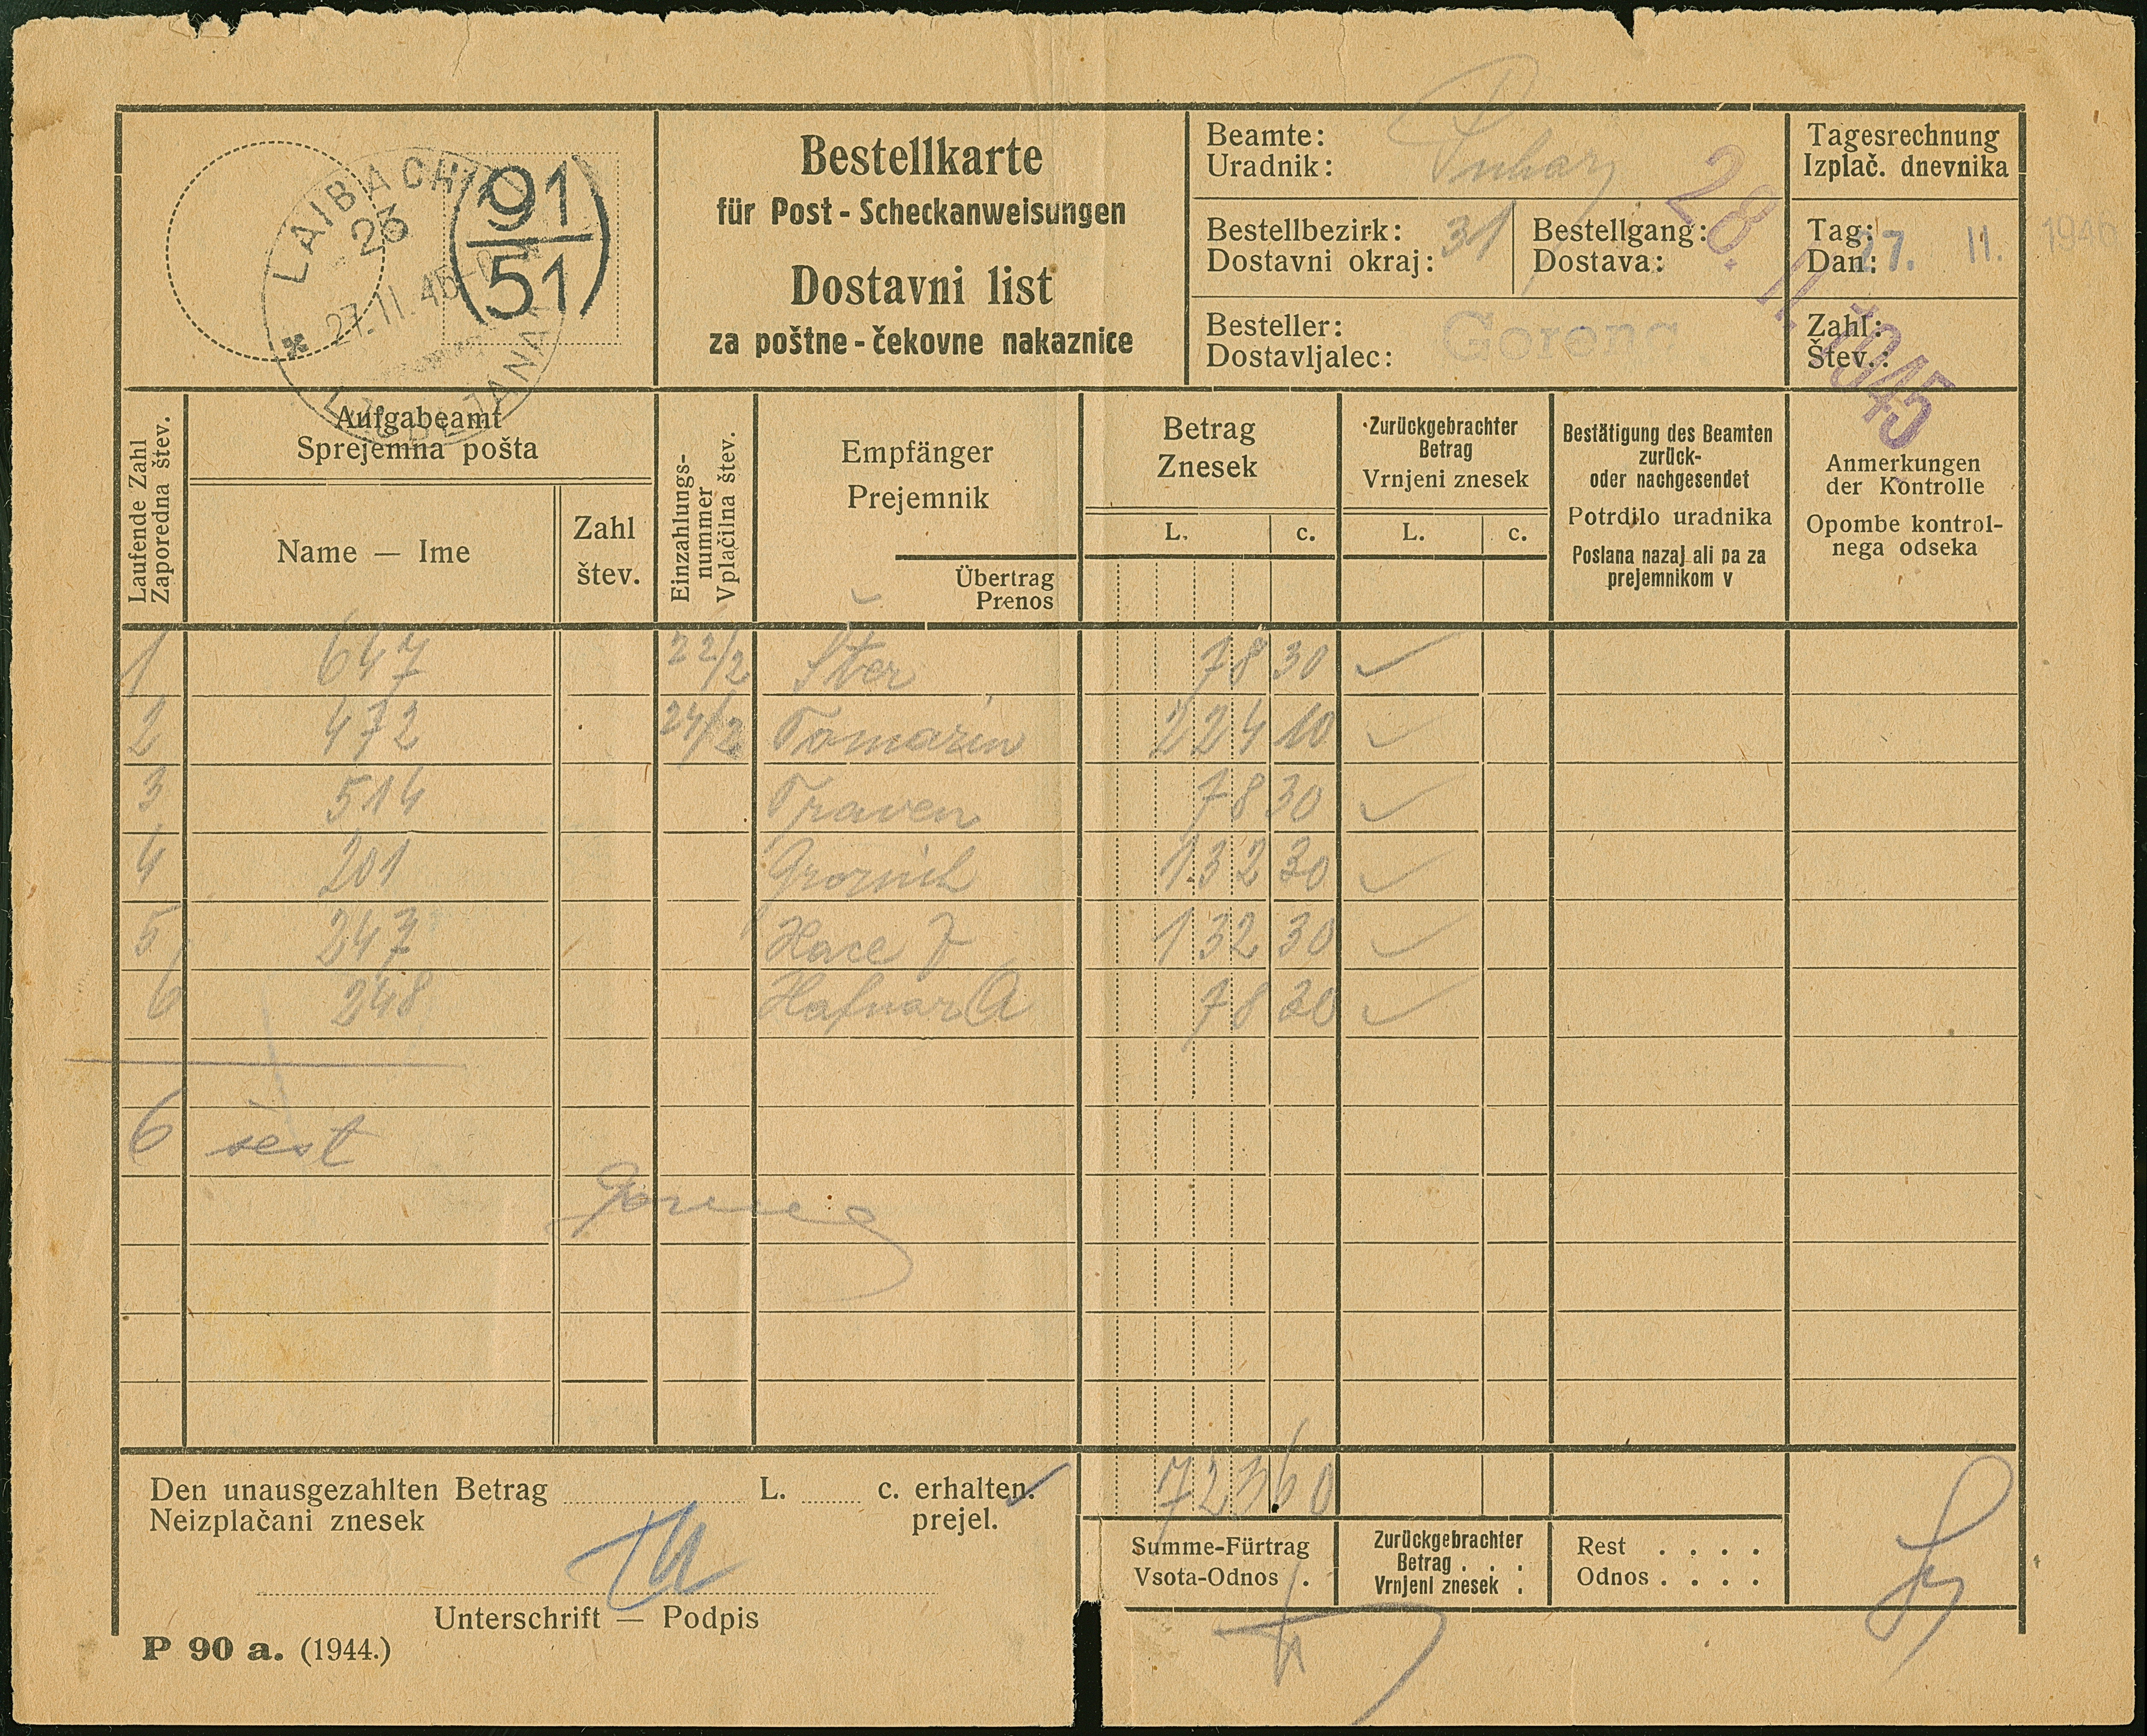 LAIBACH
23
27.11.45
LJUBLJANA
91
51
Bestellkarte
für Post - Scheckanweisungen
Dostavni list
za poštne - čekovne nakaznice
Beamte:
Uradnik:
Bestellbezirk: 31
Dostavni okraj:
Bestellgang:
Dostava:
Besteller: Gorenc
Dostavljalec:
Tagesrechnung
Izplač. dnevnika
Tag: 27. II. 1945
Dan:
Zahl:
Štev.:
28. II. 1945
Laufende Zahl
Zaporedna štev.
Aufgabeamt
Sprejemna pošta
Name — Ime
Zahl
štev.
Einzahlungs-
nummer
Vplačilna štev.
Empfänger
Prejemnik
Übertrag
Prenos
Betrag
Znesek
L. c.
Zurückgebrachter
Betrag
Vrnjeni znesek
L. c.
Bestätigung des Beamten
zurück-
oder nachgesendet
Potrdilo uradnika
Poslana nazaj ali pa za
prejemnikom v
Anmerkungen
der Kontrolle
Opombe kontrol-
nega odseka
1 647 22/2 Šter 78 30
2 472 24/2 Tomazin 224 10
3 514 Traven 78 30
4 201 132 30
5 247 Hace J 132 30
6 248 Hafnar A 78 30
6 šest
Gorenc
723 60
Den unausgezahlten Betrag L. c. erhalten.
Neizplačani znesek prejel.
Unterschrift — Podpis
Summe-Fürtrag
Vsota-Odnos .
Zurückgebrachter
Betrag . . .
Vrnjeni znesek .
Rest . . . .
Odnos . . . .
P 90 a. (1944.)